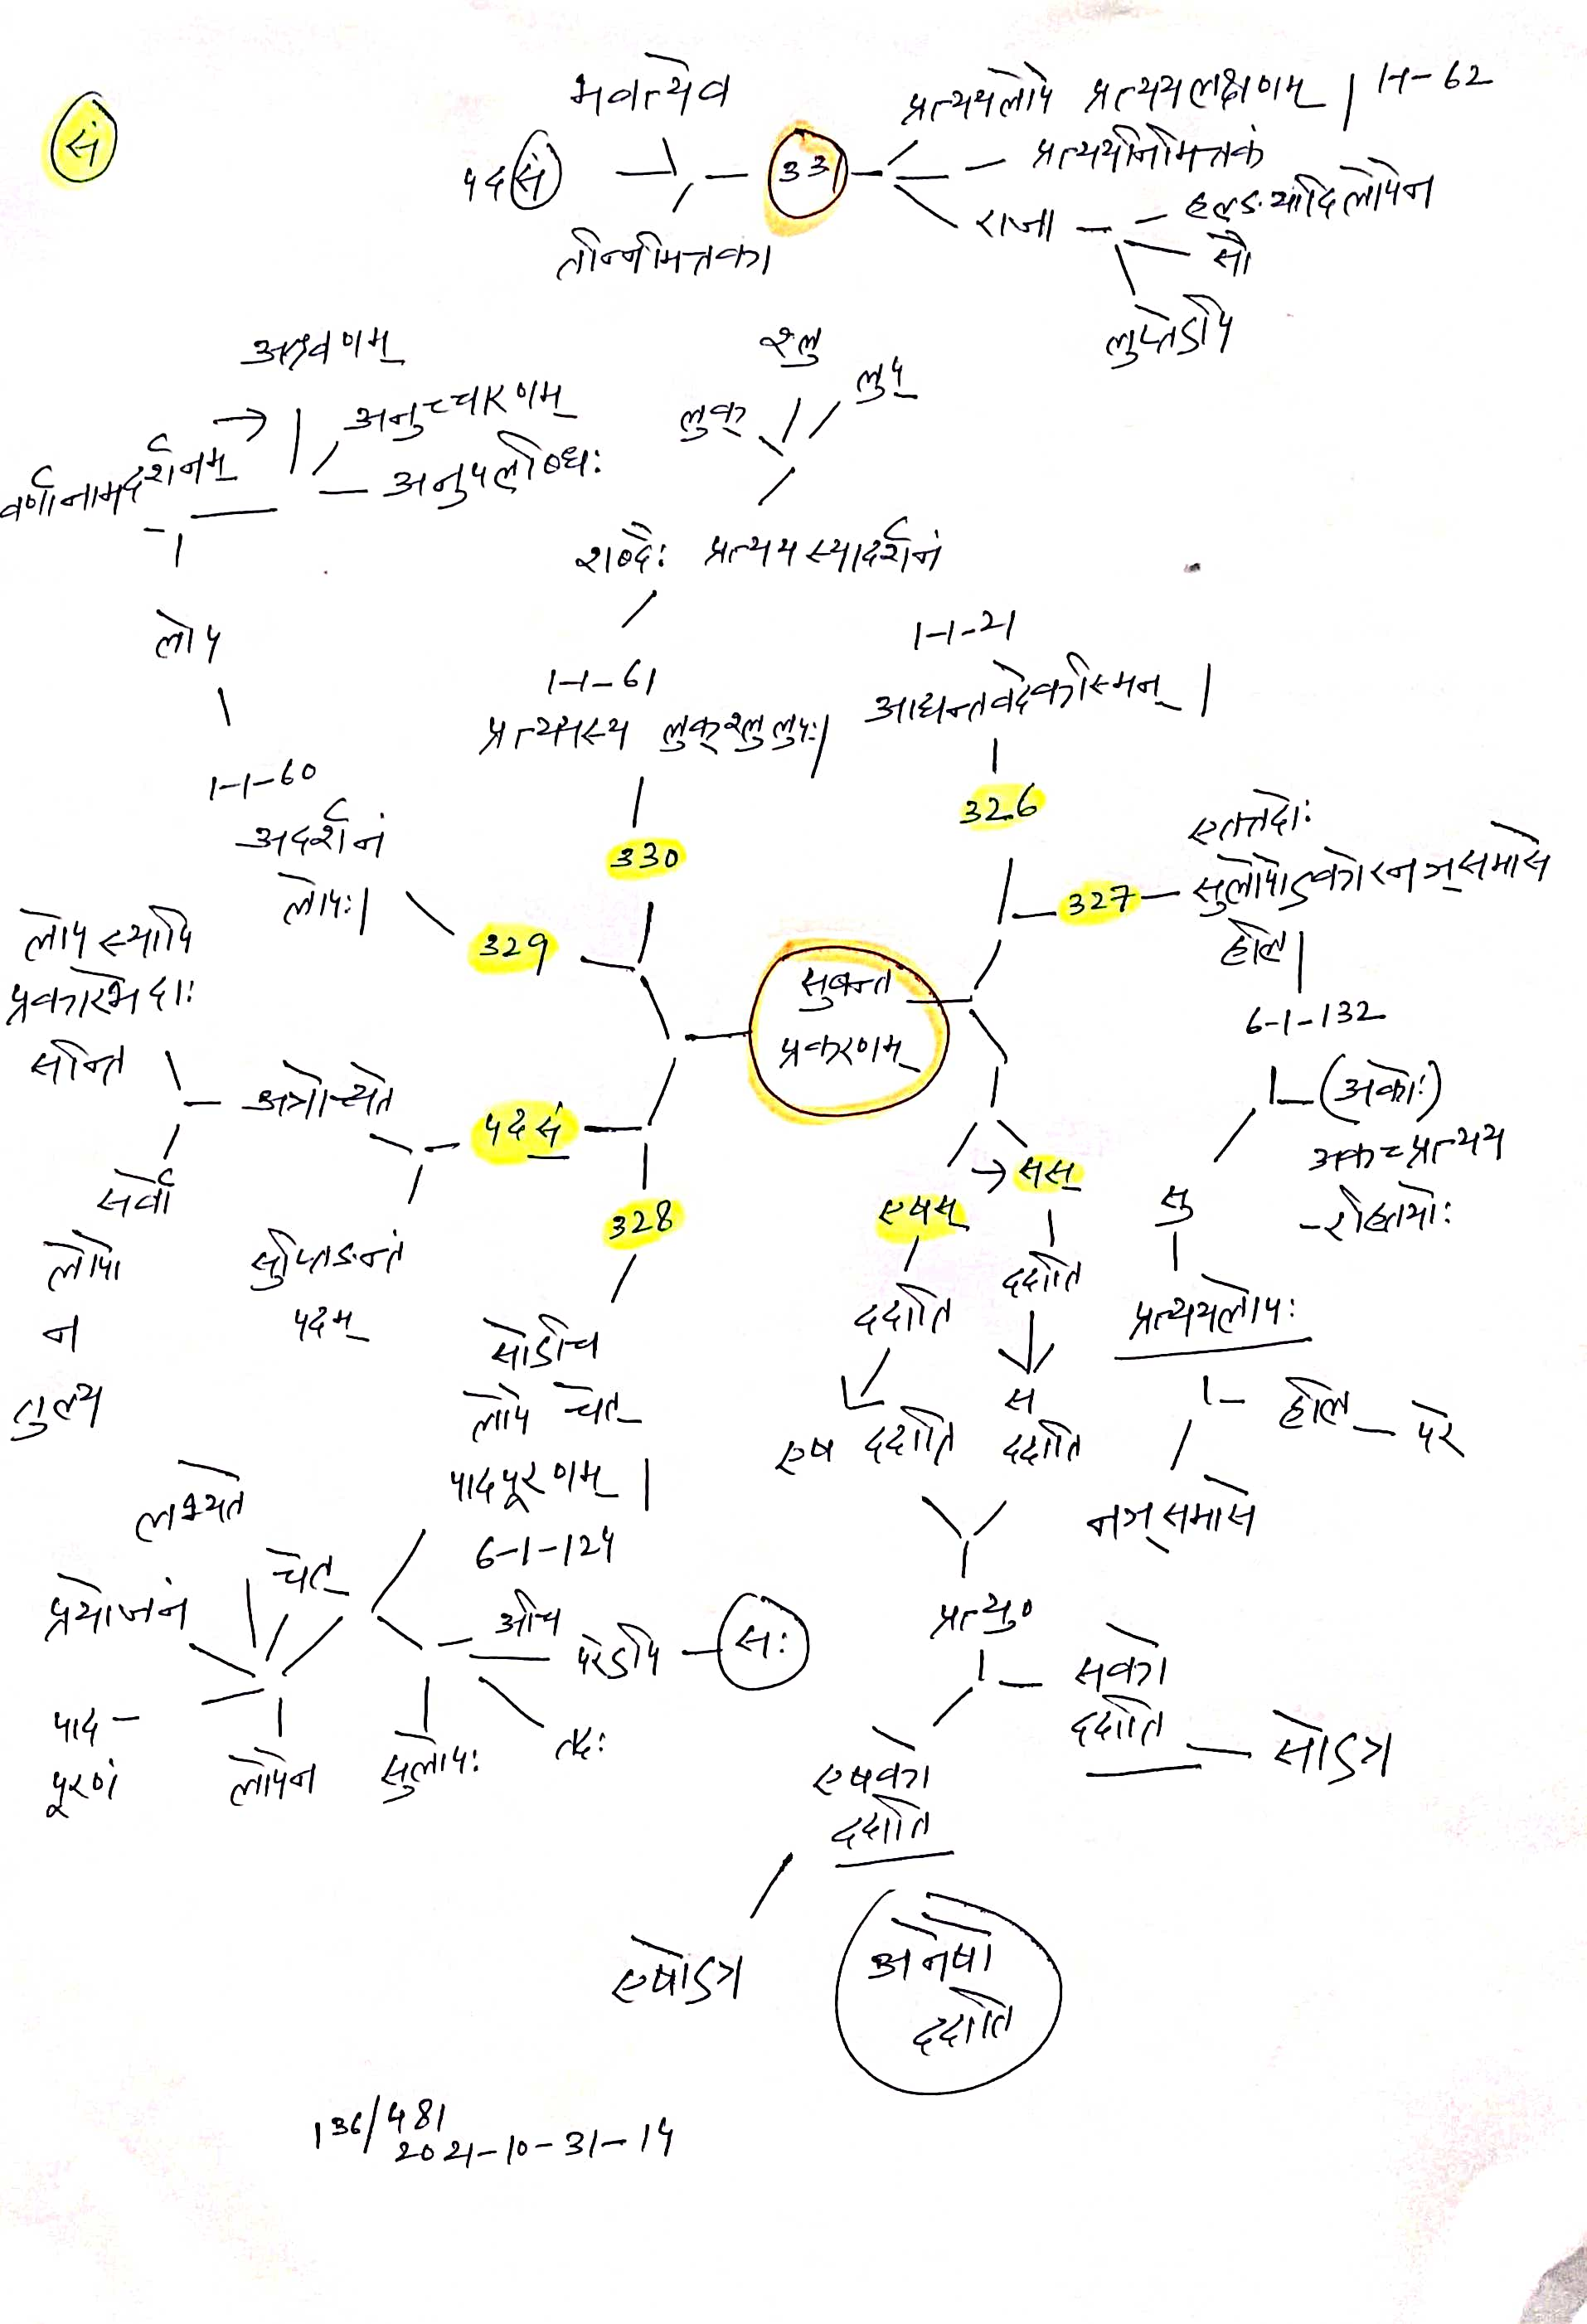 सं
भवत्येव
पदसं
331
तन्निमित्तका
प्रत्ययलोपे प्रत्ययलक्षणम् | 1-1-62
प्रत्ययनिमित्तकं
राजा
हल्ङ्यादिलोपेन
सौ
लुप्तेऽपि
अश्रवणम्
अनुच्चारणम्
अनुपलब्धिः
वर्णानामदर्शनम्
लोप
1-1-60
अदर्शनं
लोपः|
329
श्लु
लुक्
लुप्
शब्दैः प्रत्ययस्यादर्शनं
1-1-61
प्रत्ययस्य लुक्श्लुलुपः|
330
1-1-21
आद्यन्तवदेकस्मिन् |
326
327
एतत्तदोः
सुलोपोऽकोरनञ्समासे
हलि|
6-1-132
(अकोः)
अकच्प्रत्यय
-रहितयोः
सु
प्रत्ययलोपः
हलि
परे
नञ्समासे
सुबन्त
प्रकरणम्
लोपस्यापि
प्रकारभेदाः
सन्ति
अत्रोच्यते
सर्वो
लोपो
न
तुल्य
पदसं
सुप्तिङन्तं
पदम्
328
सोऽचि
लोपे चेत्
पादपूरणम् |
6-1-134
अचि
परेऽपि
सः
तदः
सुलोपः
लभ्यते
चेत्
प्रयोजनं
पाद-
पूरणं
लोपेन
एषस्
ददाति
एष ददाति
सस्
ददाति
स
ददाति
प्रत्यु०
सको
ददाति
सोऽत्र
एषको
ददाति
एषोऽत्र
अनेषो
ददाति
136/481
2021-10-31-14